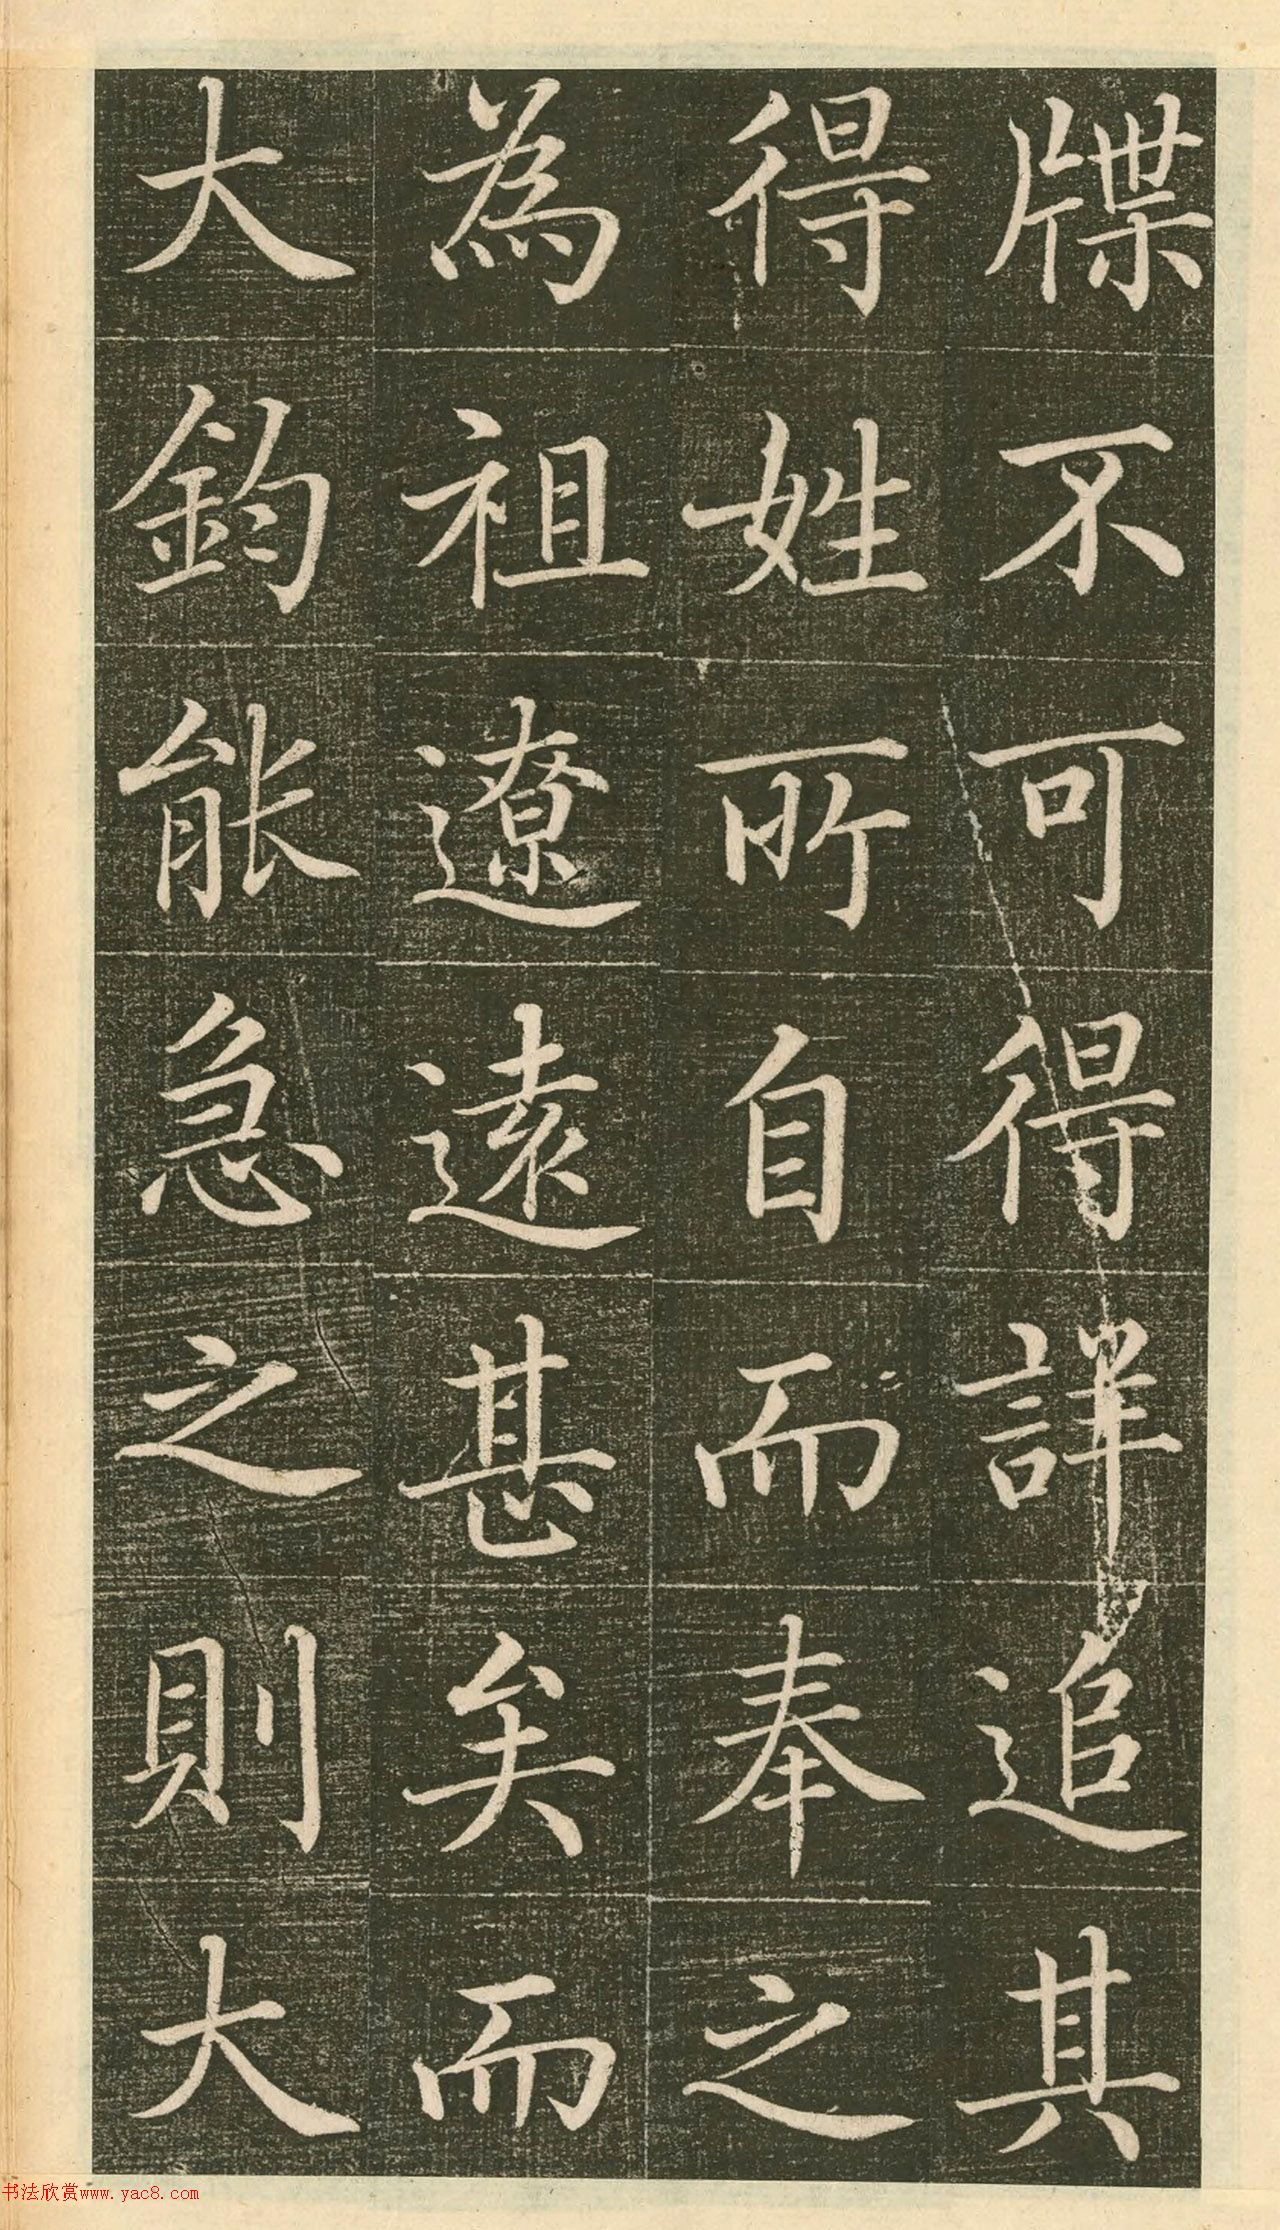 牒不可得詳追其
得姓所自而奉之
為祖遼遠甚矣而
大鈞能急之則大
书法欣赏www.yac8.com